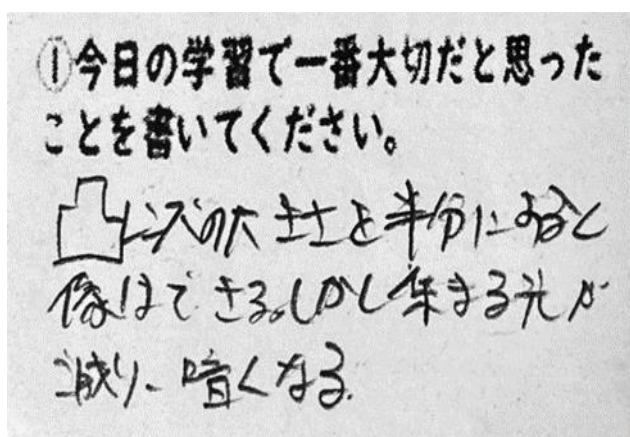 ①今日の学習で一番大切だと思った
ことを書いてください。
凸レンズの大きさを半分にすると
像はできる。しかし集まる光が
減り、暗くなる.